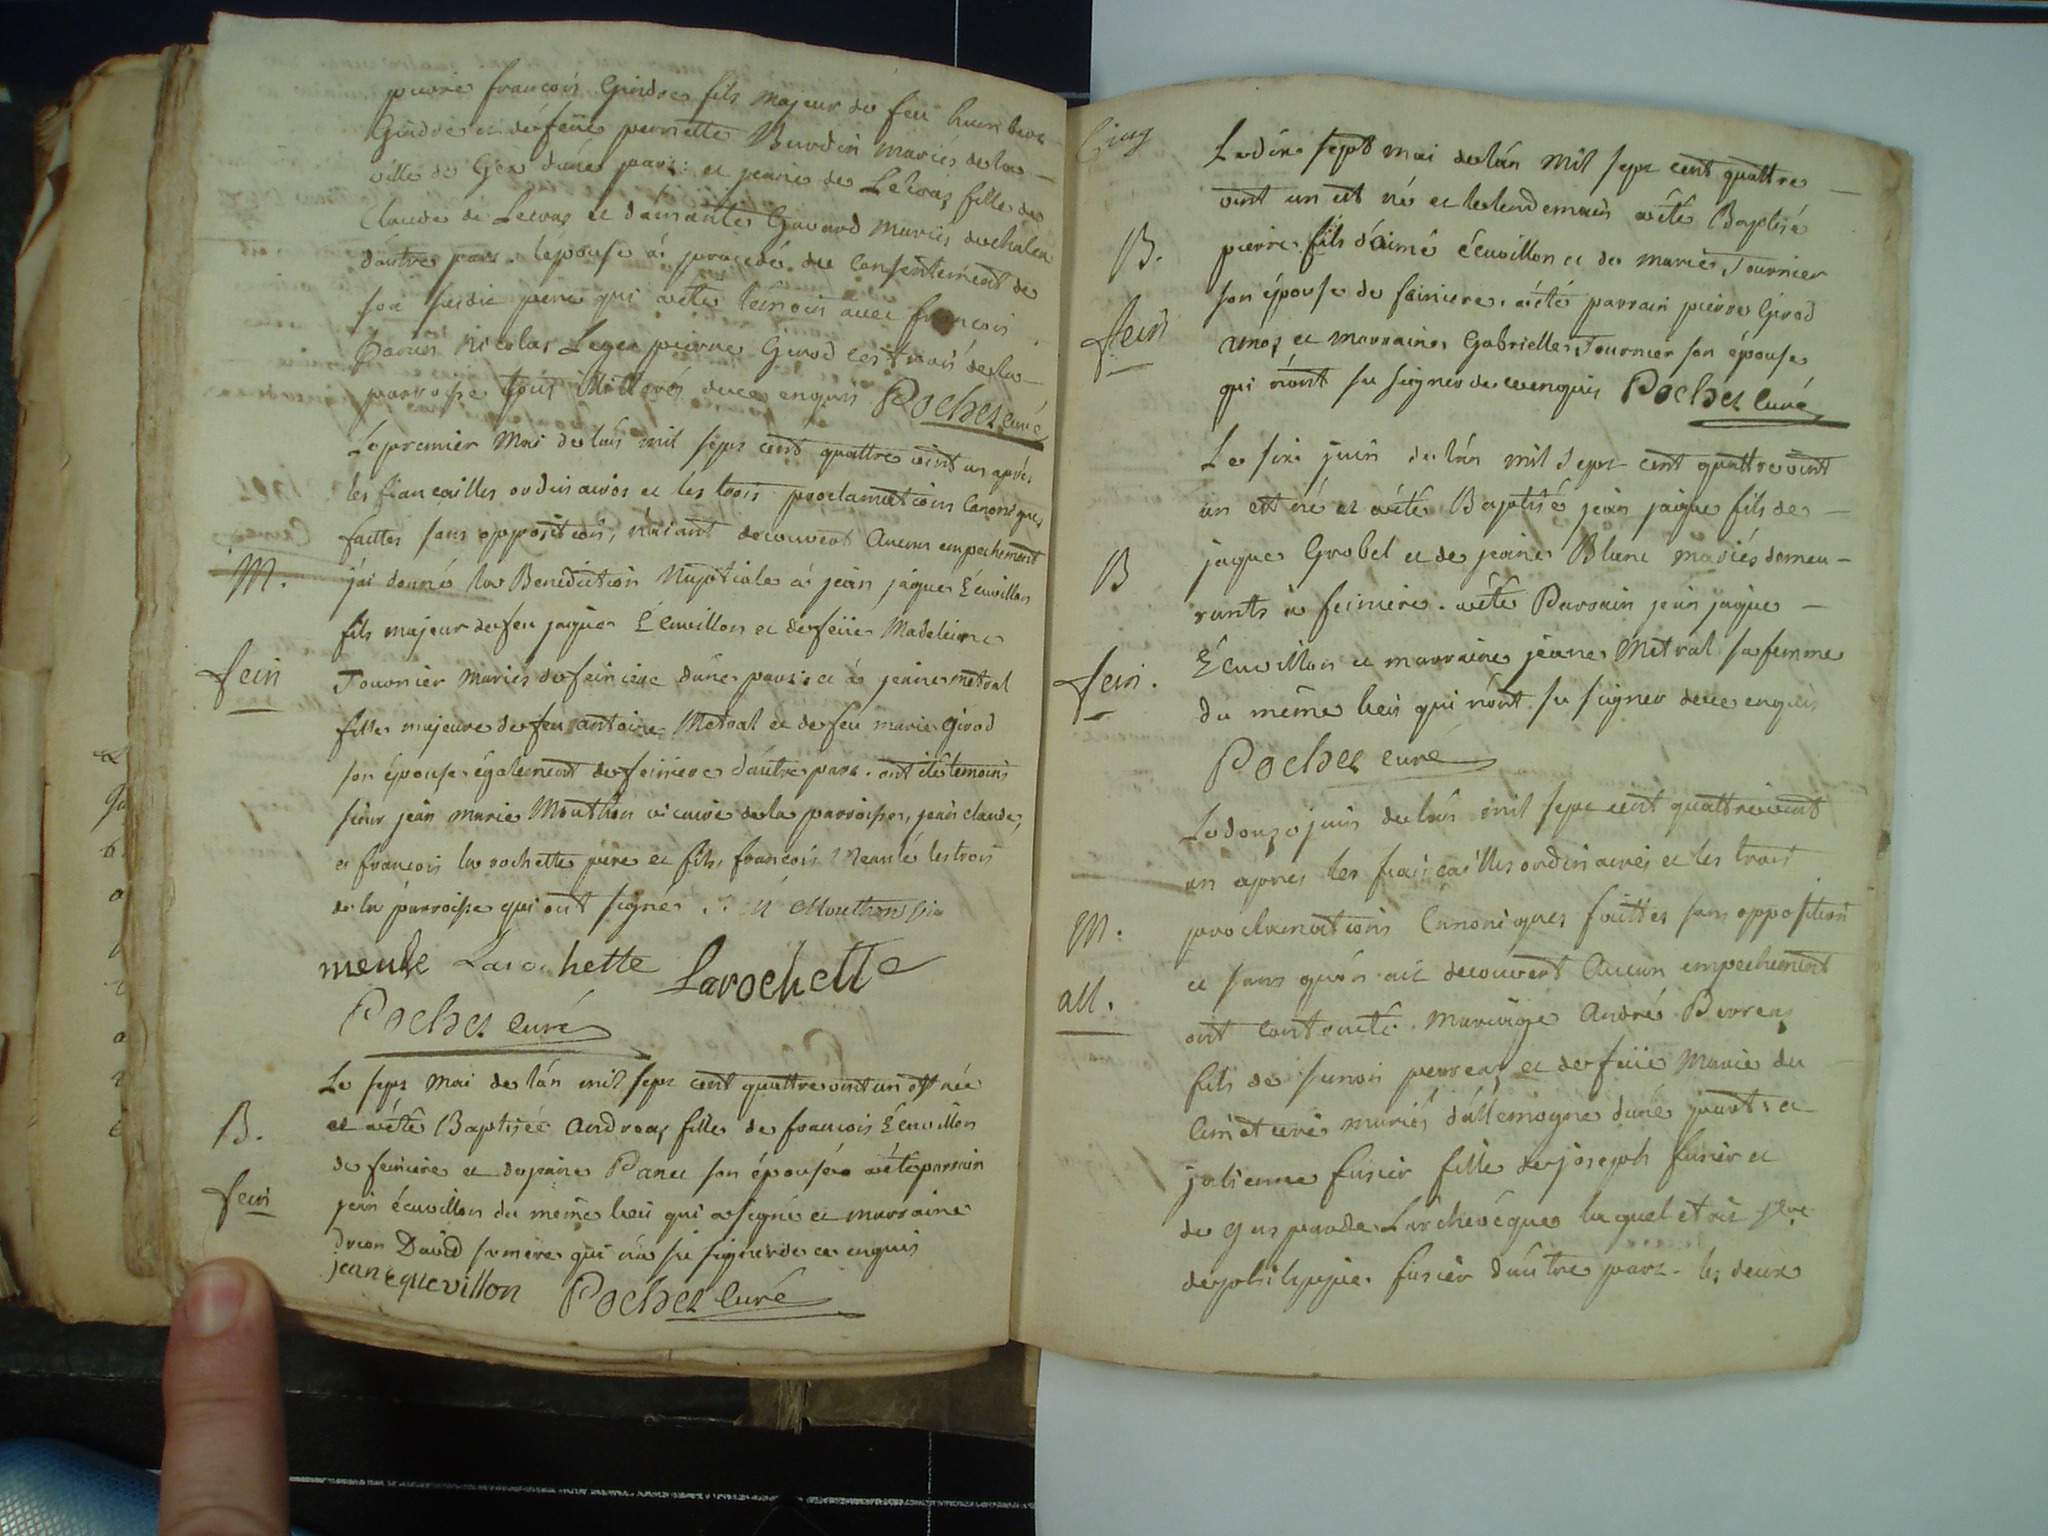 pierre françois Girdre fils majeur de feu humbert
Girdre et de feüe pernette Burdin mariés de la
ville de Gex d'une part: et jeanne de Lecraz fille de
Claude de Lecraz et damante Gavard mariés de chalex
d'autre part. lepouse a procedé du consentement de
son susdit pere qui a été témoin avec françois
nicolas Leger pierre Girod les trois de la
parroisse tous illitterés de ce enquis Pochet curé
Le premier Mai de l'an mil sept cent quattre vint un après
les fiançailles ordinaires et les trois proclamations Canoniques
faittes sans opposition, n'aiant decouvert Aucun empechement
M.
j'ai donné la Benediction Nuptiale à jean jaque Ecuvillon
fils majeur de feu jaque Ecuvillon et de feüe Madeleine
fein
Tournier mariés de feiniere d'une part: et à jeanne metral
fille majeure de feu antoine Metral et de feu marie Girod
son épouse également de feiniere d'autre part. ont été temoins
sieur jean marie Mouthon vicaire de la parroisse, jean claude,
et françois la rochette pere et fils, françois les trois
de la parroisse qui ont signé. Mouthon vic
Larochette Larochette
Pochet curé
Le sept Mai de l'an mil sept cent quattre vint un est née
B.
et a été Baptisée Andreaz fille de françois Ecuvillon
de feiniere et de jeanne Panu son épouse a été parrain
fein
jean écuvillon du même lieu qui a signé et marraine
David sa mere qui n'a su signer de ce enquis
jean equevillon Pochet curé
Cinq
Le dix sept mai de l'an mil sept cent quattre
vint un est né et le lendemain a été Baptisé
B.
pierre fils d'aimé écuvillon et de marie Tournier
son épouse de feiniere. a été parrain pierre Girod
fein
et marraine Gabrielle Tournier son épouse
qui n'ont su signer de ce enquis Pochet curé
Le six juin de l'an mil sept cent quattre vint
un est né et a été Baptisé jean jaque fils de
B
jaque Grobel et de jeanne Blanc mariés demeu-
rants à feiniere. a été Parrain jean jaque
fein.
Ecuvillon et marraine jeanne Metral sa femme
du même lieu qui n'ont su signer de ce enquis
Pochet curé
Le douze juin de l'an mil sept cent quattre vint
un après les fiançailles ordinaires et les trois
M.
proclamations Canoniques faittes sans opposition
et sans qu'on ait decouvert Aucun empechement
all.
ont contracté Mariage André Perreaz
fils de simon perreaz et de feüe Marie du
mariés d'allemogne d'une part: et
julienne fusier fille de joseph fusier et
de Larchevêque
de philippe fusier d'autre part. les deux